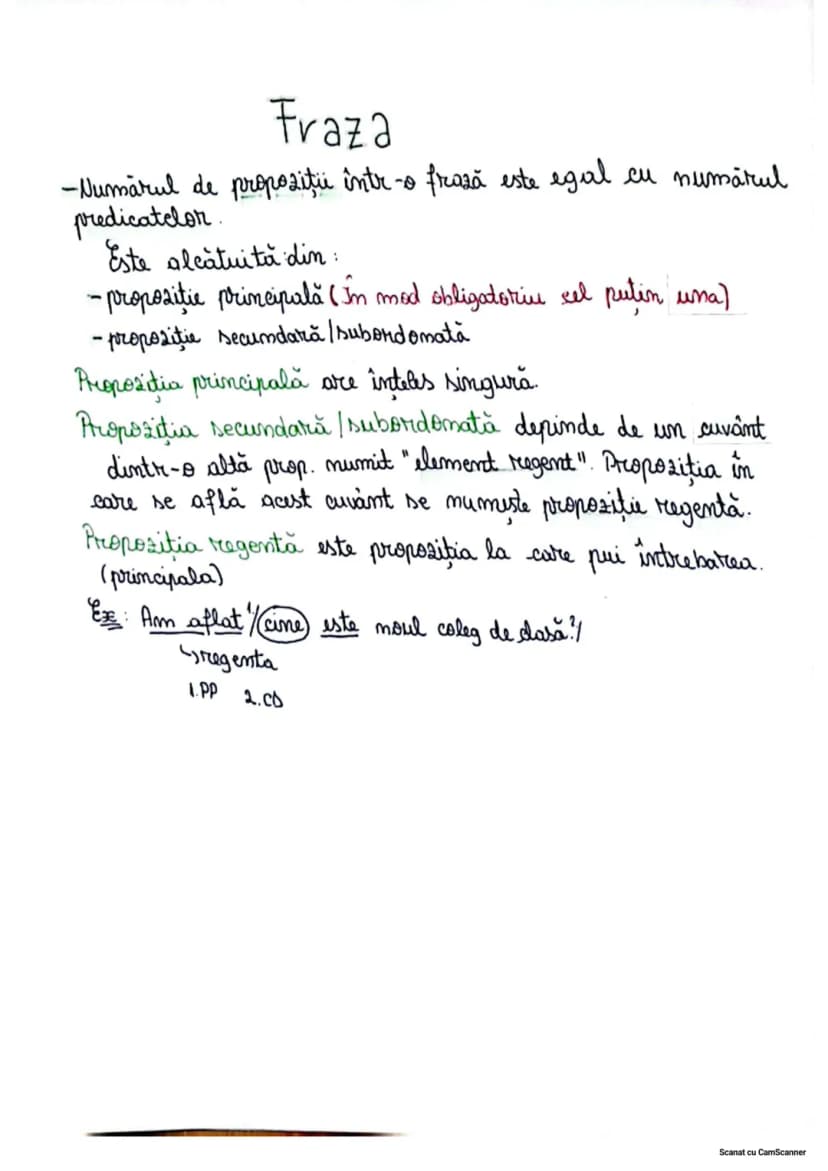 Fraza
-Numărul de propoziții într-o frază este egal cu numărul
predicatelor.
Este alcătuită din:
-propoziție principală (În mod obligatoriu cel puțin una)
-propoziție secundară/subordonată
Propoziția principală are înțeles singură.
Propoziția secundară/subordonată depinde de un cuvânt
dintr-o altă prop. numit "element regent". Propoziția în
care se află acest cuvânt se numește propoziție regentă.
Propoziția regentă este propoziția la care pui întrebarea.
(principala)
Ex: Am aflat ¹/ cine este noul coleg de clasă.²/
↳regenta
1.PP 2.CD
Scanat cu CamScanner